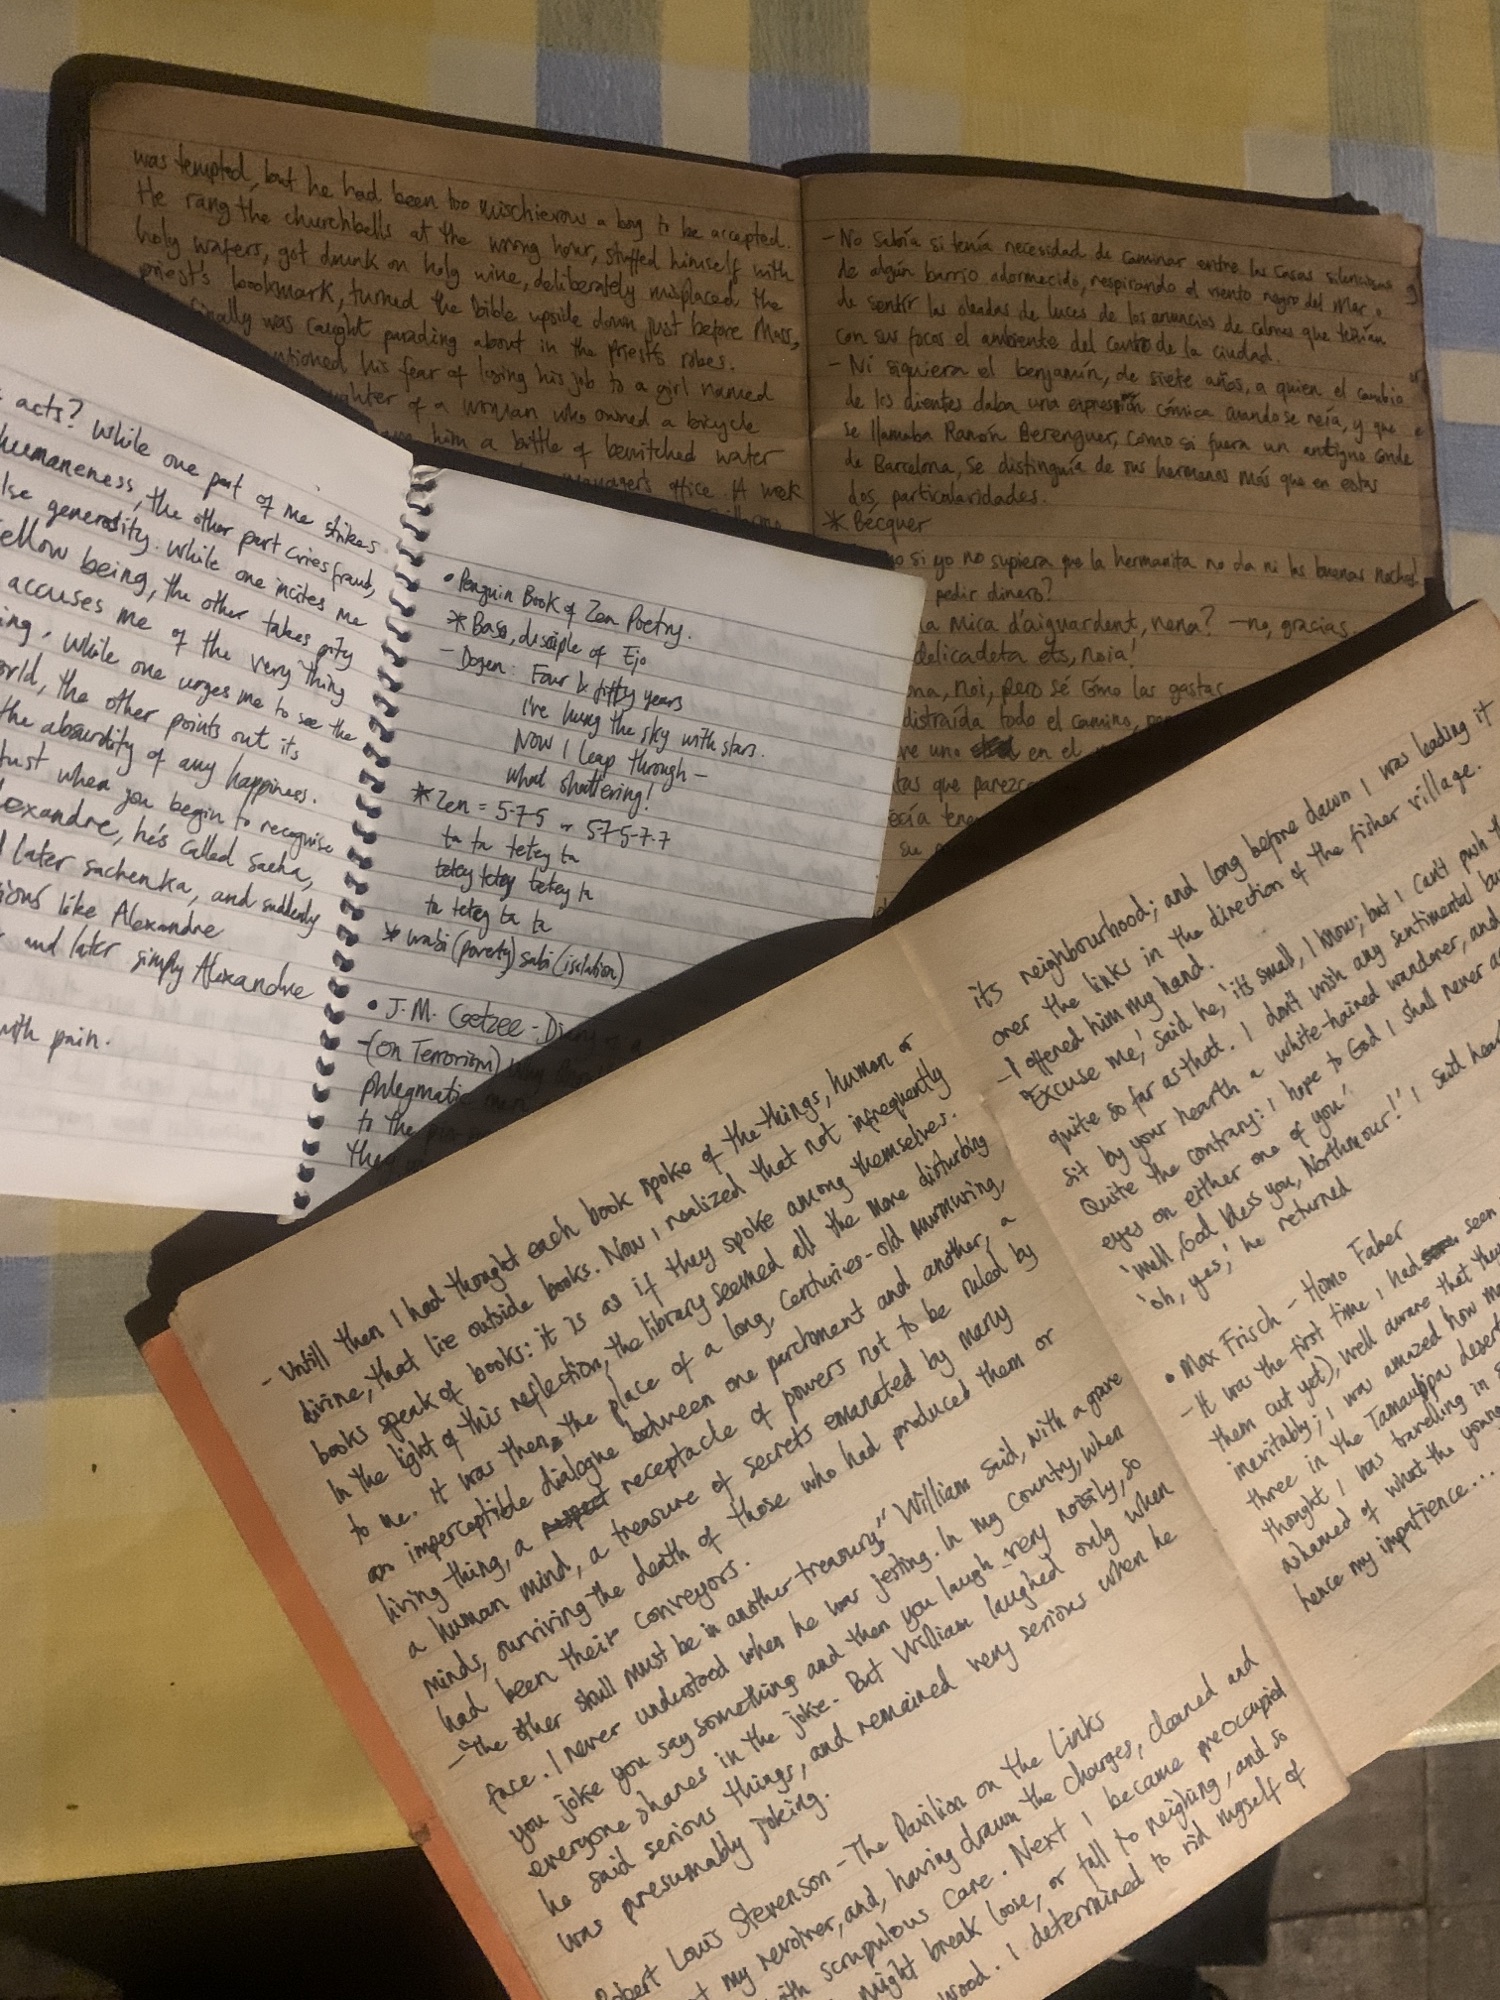 was tempted, but he had been too mischievous a boy to be accepted.
He rang the churchbells at the wrong hour, stuffed himself with
holy wafers, got drunk on holy wine, deliberately misplaced the
priest's bookmark, turned the Bible upside down just before Mass,
finally was caught parading about in the priest's robes.
his fear of losing his job to a girl named
of a woman who owned a bicycle
him a bottle of bewitched water
manager's office. A week
- No sabía si tenía necesidad de caminar entre las casas silenciosas
de algún barrio adormecido, respirando el viento negro del mar o
de sentir las oleadas de luces de los anuncios de colores que teñían
con sus focos el ambiente del centro de la ciudad.
- Ni siquiera el benjamín, de siete años, a quien el cambio
de los dientes daba una expresión cómica cuando se reía, y que
se llamaba Ramón Berenguer, como si fuera un antiguo conde
de Barcelona, se distinguía de sus hermanos más que en estas
dos particularidades.
* Bécquer
si yo no supiera que la hermanita no da ni las buenas noches
pedir dinero?
na mica d'aiguardent, nena? - no, gracias
delicadeta ets, noia!
noi, pero sé cómo las gastas
distraída todo el camino,
uno en el
que
su
acts? While one part of me strikes
humaneness, the other part cries fraud,
generosity. While one incites me
fellow being, the other takes pity
accuses me of the very thing
while one urges me to see the
the other points out its
the absurdity of any happiness.
Just when you begin to recognise
Alexandre, he's called Sacha,
later Sachenka, and suddenly
like Alexandre
and later simply Alexandre
with pain.
• Penguin Book of Zen Poetry.
* Baso, disciple of Ejo
- Dogen: Four & fifty years
I've hung the sky with stars.
Now I leap through -
what shattering!
* Zen = 5-7-5 or 5-7-5-7-7
ta ta tetey ta
tetey tetey tetey ta
ta tetey ta ta
* wabi (poverty) sabi (isolation)
• J.M. Coetzee - Diary
- (On Terrorism)
phlegmatic
to the
they
- Untill then I had thought each book spoke of the things, human or
divine, that lie outside books. Now I realized that not infrequently
books speak of books: it is as if they spoke among themselves.
In the light of this reflection, the library seemed all the more disturbing
to me. It was then the place of a long, centuries-old murmuring,
an imperceptible dialogue between one parchment and another, a
living thing, a receptacle of powers not to be ruled by
a human mind, a treasure of secrets emanated by many
minds, surviving the death of those who had produced them or
had been their conveyors.
- "The other skull must be in another treasury," William said, with a grave
face. I never understood when he was jesting. In my country, when
you joke you say something and then you laugh very noisily, so
everyone shares in the joke. But William laughed only when
he said serious things, and remained very serious when he
was presumably joking.
Robert Louis Stevenson - The Pavilion on the Links
my revolver, and, having drawn the charges, cleaned and
with scrupulous care. Next I became preoccupied
might break loose, or fall to neighing, and so
wood. I determined to rid myself of
its neighbourhood; and long before dawn I was leading it
over the links in the direction of the fisher village.
- I offered him my hand.
'Excuse me,' said he, 'it's small, I know; but I can't push
quite so far as that. I don't wish any sentimental
sit by your hearth a white-haired wanderer, and
Quite the contrary: I hope to God I shall never
eyes on either one of you'.
'Well, God bless you, Northmour!' I said
'oh, yes,' he returned
• Max Frisch - Homo Faber
- It was the first time, I had seen
them out yet), well aware that they
inevitably; I was amazed how
three in the Tamaulipa desert
thought I was traveling in
ashamed of what the young
hence my impatience...